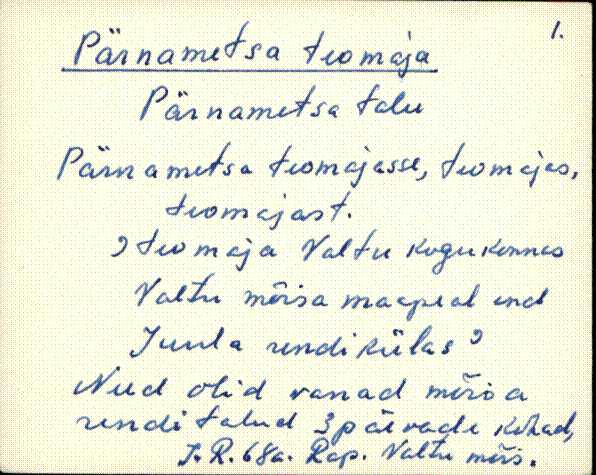 1.
Pärnametsa teomaja
Pärnametsa talu
Pärnametsa teomajasse, teomajas,
teomajast.
? teomaja Valtu kogukonnas
Valtu mõisa maapeal end
Juula rendikülas?
Need olid vanad mõisa
rendi talud 3 päevade kohad,
J. R. 68a. Rap. Valtu mõis.